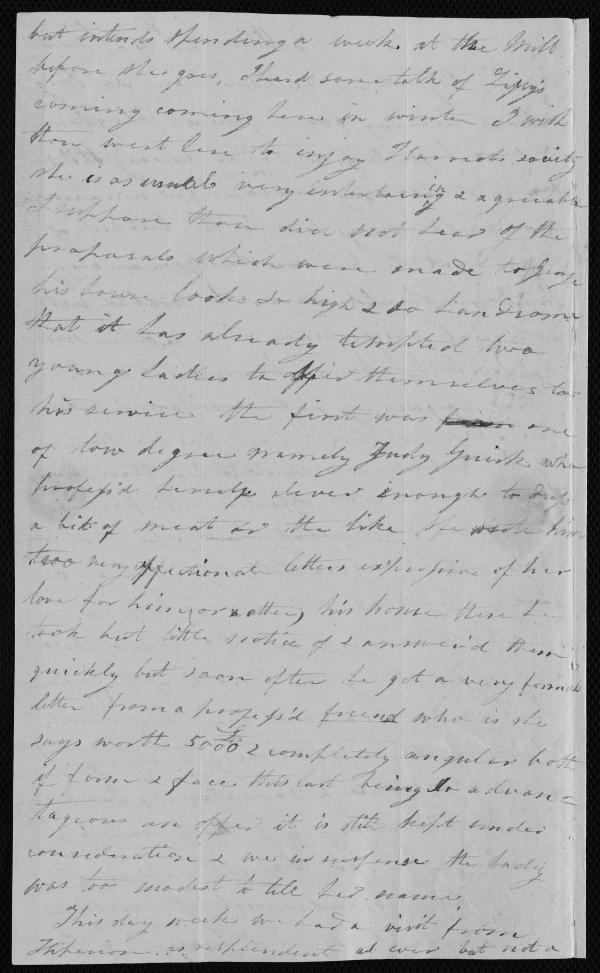 but intends spending a week at the Mill
before she goes, I heard some talk of Lizzy's
coming coming here in winter I wish
thou wert here to enjoy Hannah's society
she is as usual very entertaining & agreeable
I suppose thou did not hear of the
proposals which were made to George
his house looks so high & so handsome
that it has already tempted two
young Ladies to offer themselves to
his service the first was one
of low degree namely Judy Quirk who
profess'd herself clever enough to dress
a bit of meat or the like. She wrote him
two very affectionate letters expressive of her
love for him, or rather, his house these he
took but little notice of & answer'd them
quickly but soon after he got a very formal
letter from a profess'd friend who is she
says worth 5000£ & completely angular both
of form & face this last being so advan=
tageous an offer it is still kept under
consideration & we in suspense the Lady
was too modest to tell her name
This day week we had a visit from
as resplendent as ever but not a